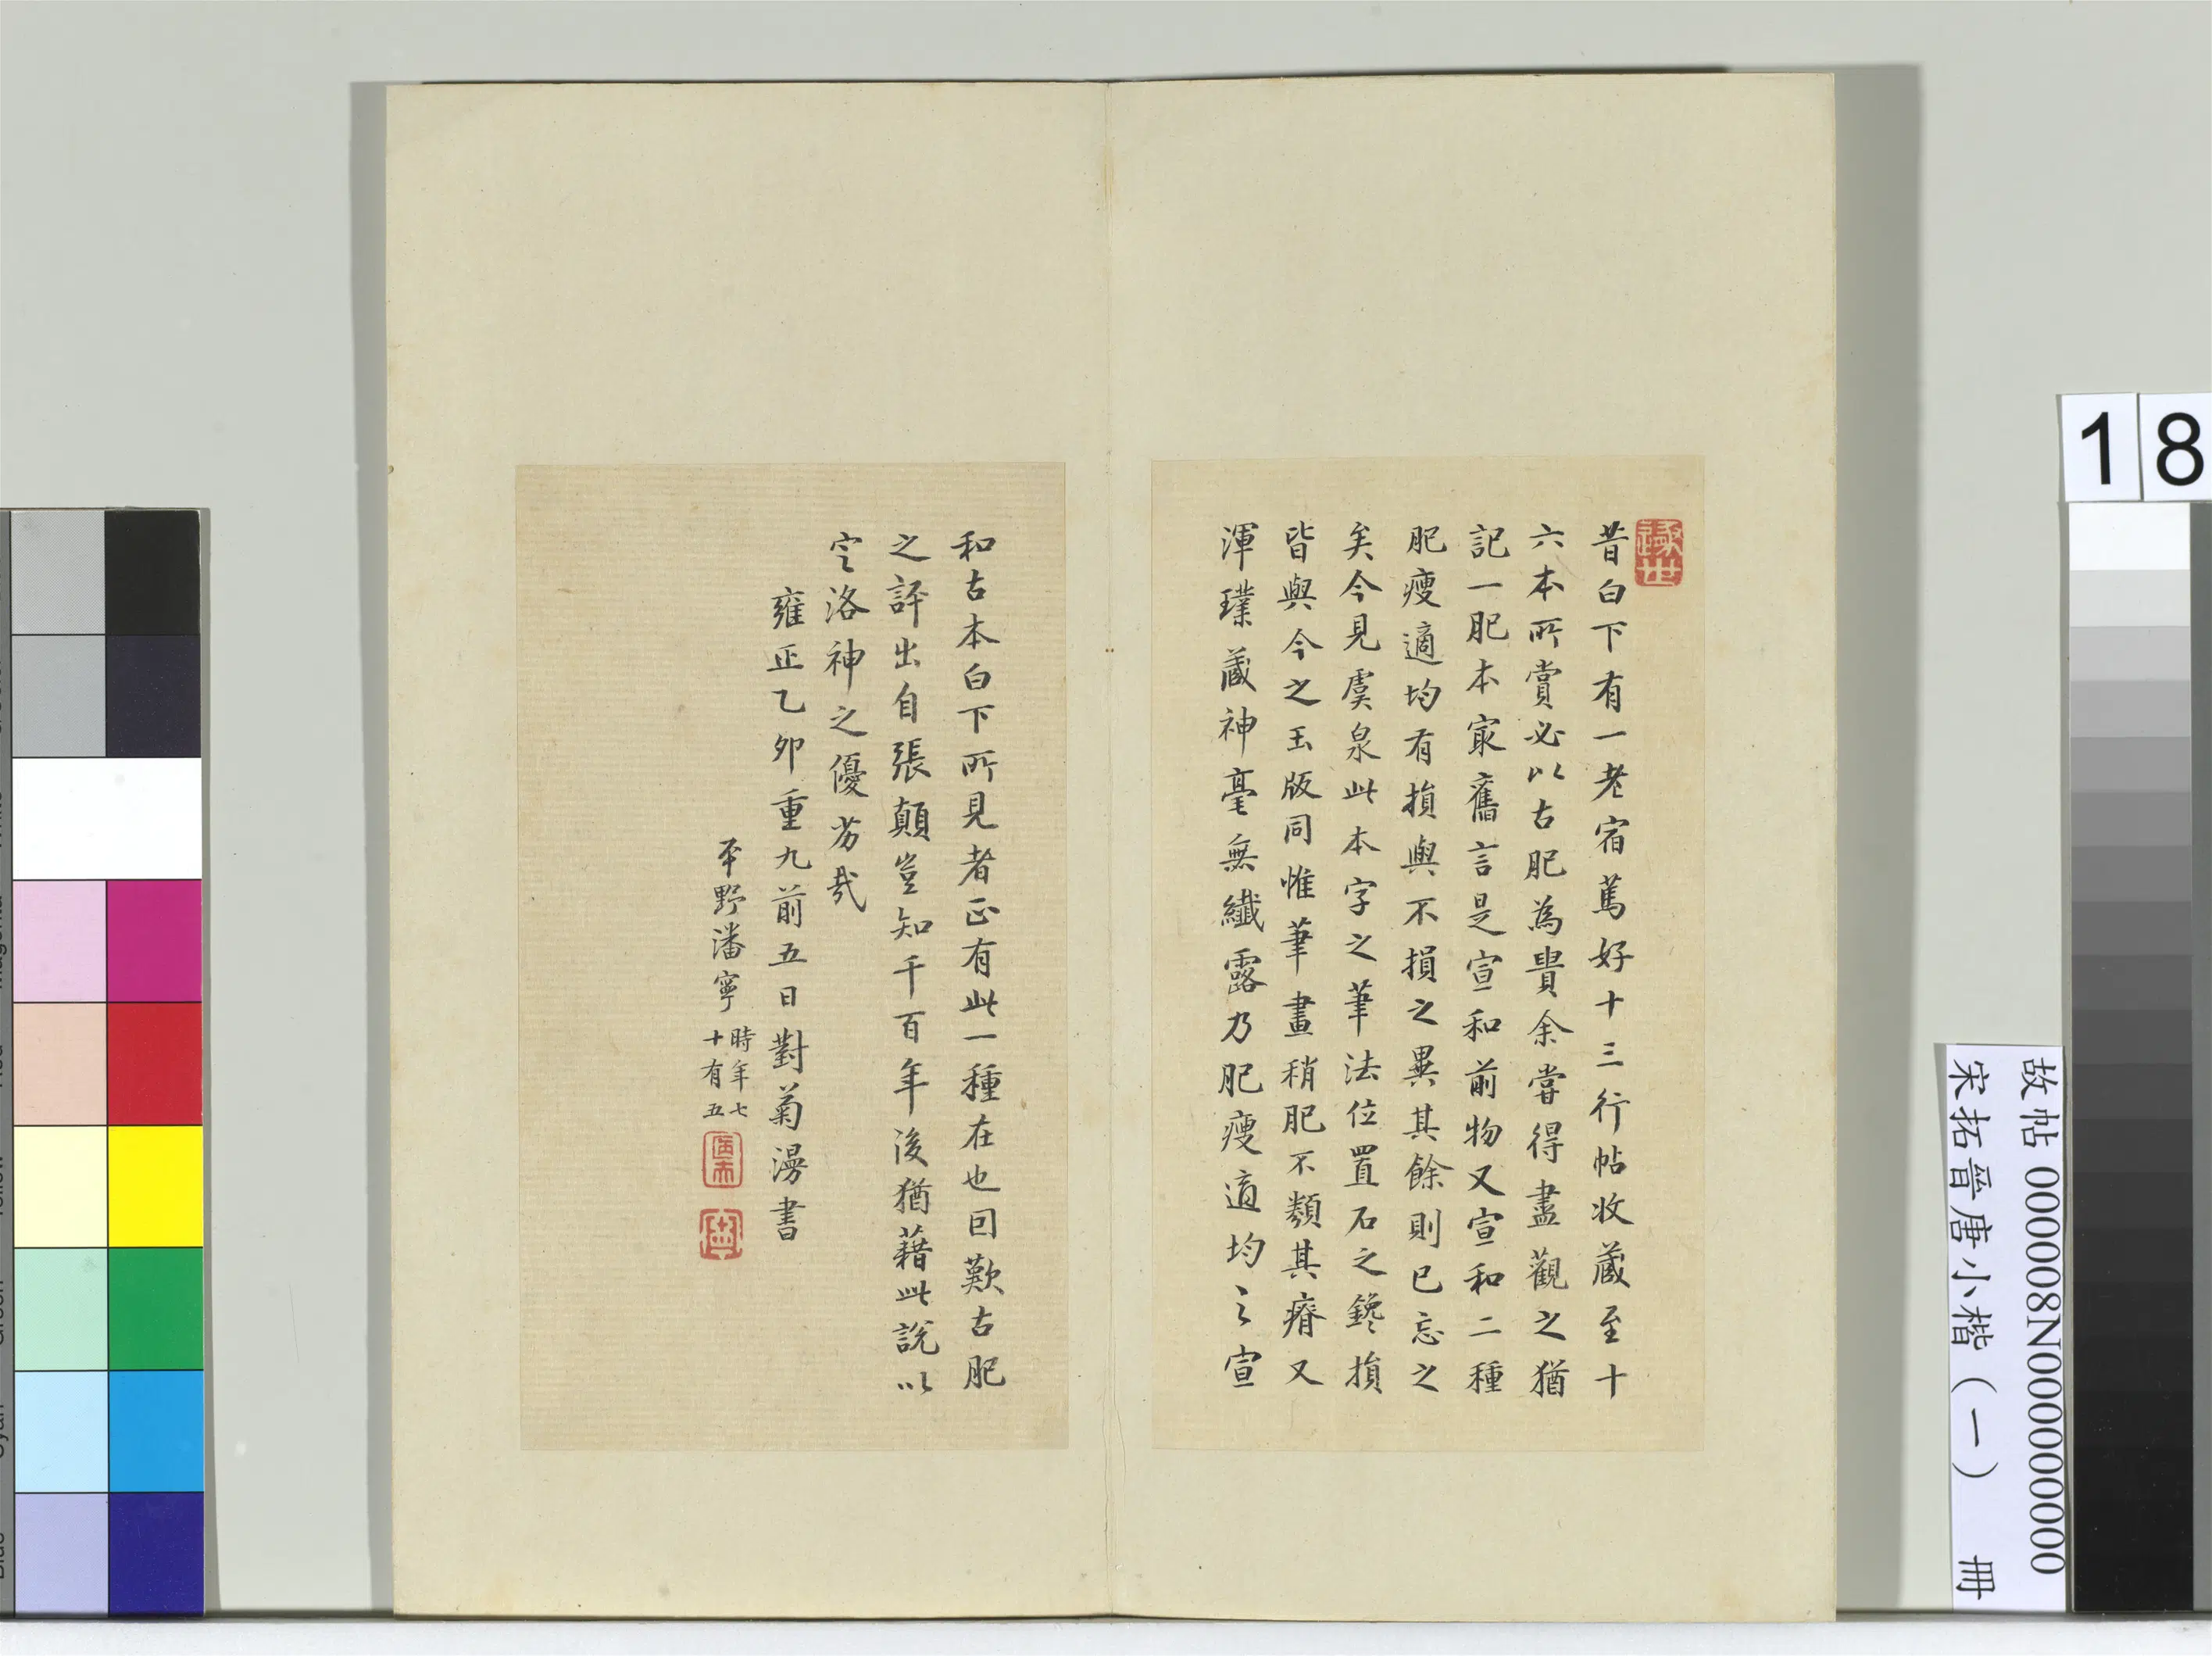 昔白下有一老宿篤好十三行帖收藏至十
六本所賞必以古肥為貴余嘗得盡觀之猶
記一肥本冣舊言是宣和前物又宣和二種
肥瘦適均有損與不損之異其餘則已忘之
矣今見虞泉此本字之筆法位置石之鑱損
皆與今之玉版同惟筆畫稍肥不類其瘠又
渾璞藏神毫無纖露乃肥瘦適均之宣
和古本白下所見者正有此一種在也回歎古肥
之評出自張顛豈知千百年後猶藉此說以
定洛神之優劣哉
雍正乙卯重九前五日對菊漫書
平野潘寧
時年七
十有五
18
故帖 000008N000000000
宋拓晉唐小楷（一） 冊